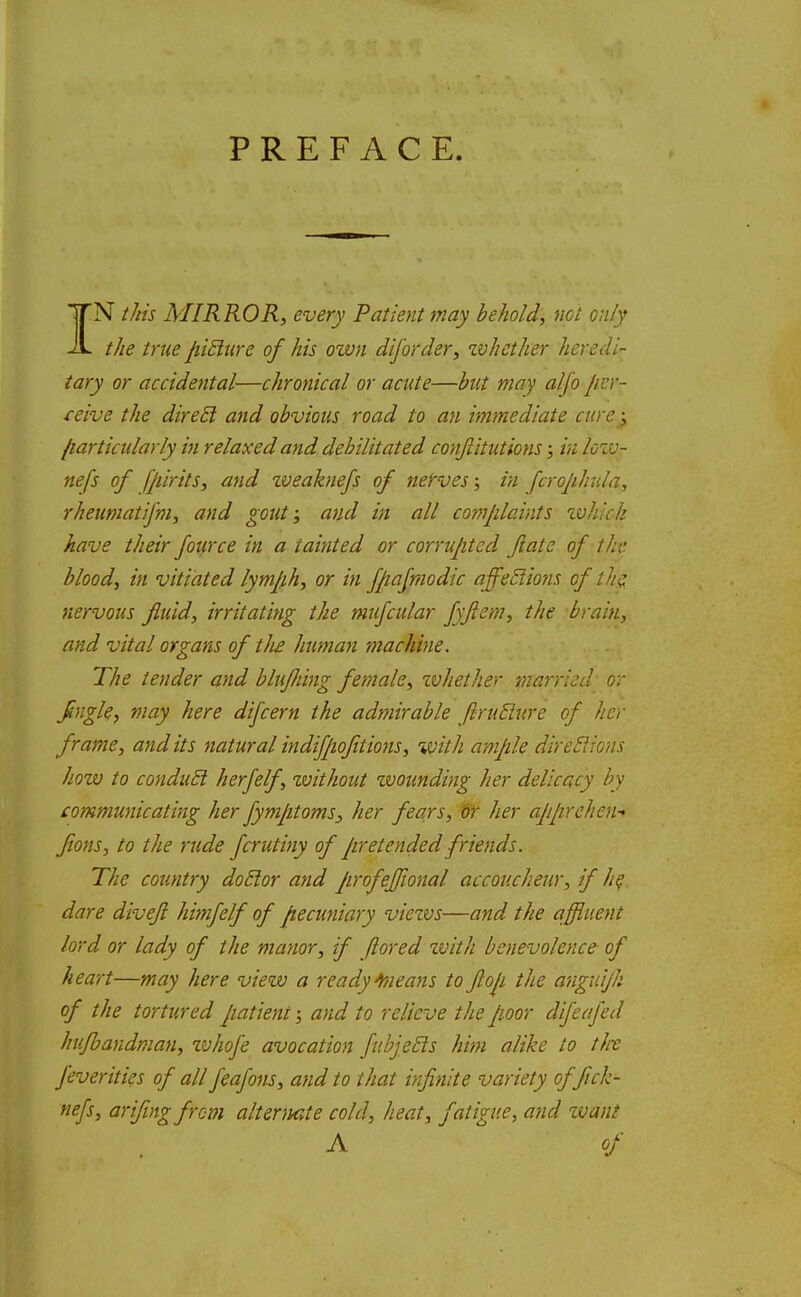 PREFACE.
IN this MIRROR, every Patient may behold, not only
the true picture of his own diſorder, whether heredi-
tary or accidental—chronical or acute—but may alſo per-
ceive the direct and obvious road to an immediate cure;
particularly in relaxed and debilitated conſtitutions; in low-
neſs of ſpirits, and weakneſs of nerves; in ſcrophula,
rheumatiſm, and gout; and in all complaints which
have their ſource in a tainted or corrupted ſtate of the
blood, in vitiated lymph, or in ſpaſmodic affections of the
nervous fluid, irritating the muſcular ſyſtem, the brain,
and vital organs of the human machine.
The tender and bluſhing female, whether married or
ſingle, may here diſcern the admirable ſtructure of her
frame, and its natural indiſpoſitions, with ample directions
how to conduct herſelf, without wounding her delicacy by
communicating her ſymptoms, her fears, or her apprehen-
ſions, to the rude ſcrutiny of pretended friends.
The country doctor and profeſſional accoucheur, if he
dare diveſt himſelf of pecuniary views—and the affluent
lord or lady of the manor, if ſtored with benevolence of
heart—may here view a ready means to ſtop the anguiſh
of the tortured patient; and to relieve the poor diſeaſed
huſbandman, whoſe avocation ſubjects him alike to the
ſeverities of all ſeaſons, and to that infinite variety of ſick-
neſs, ariſing from alternate cold, heat, fatigue, and want
A of